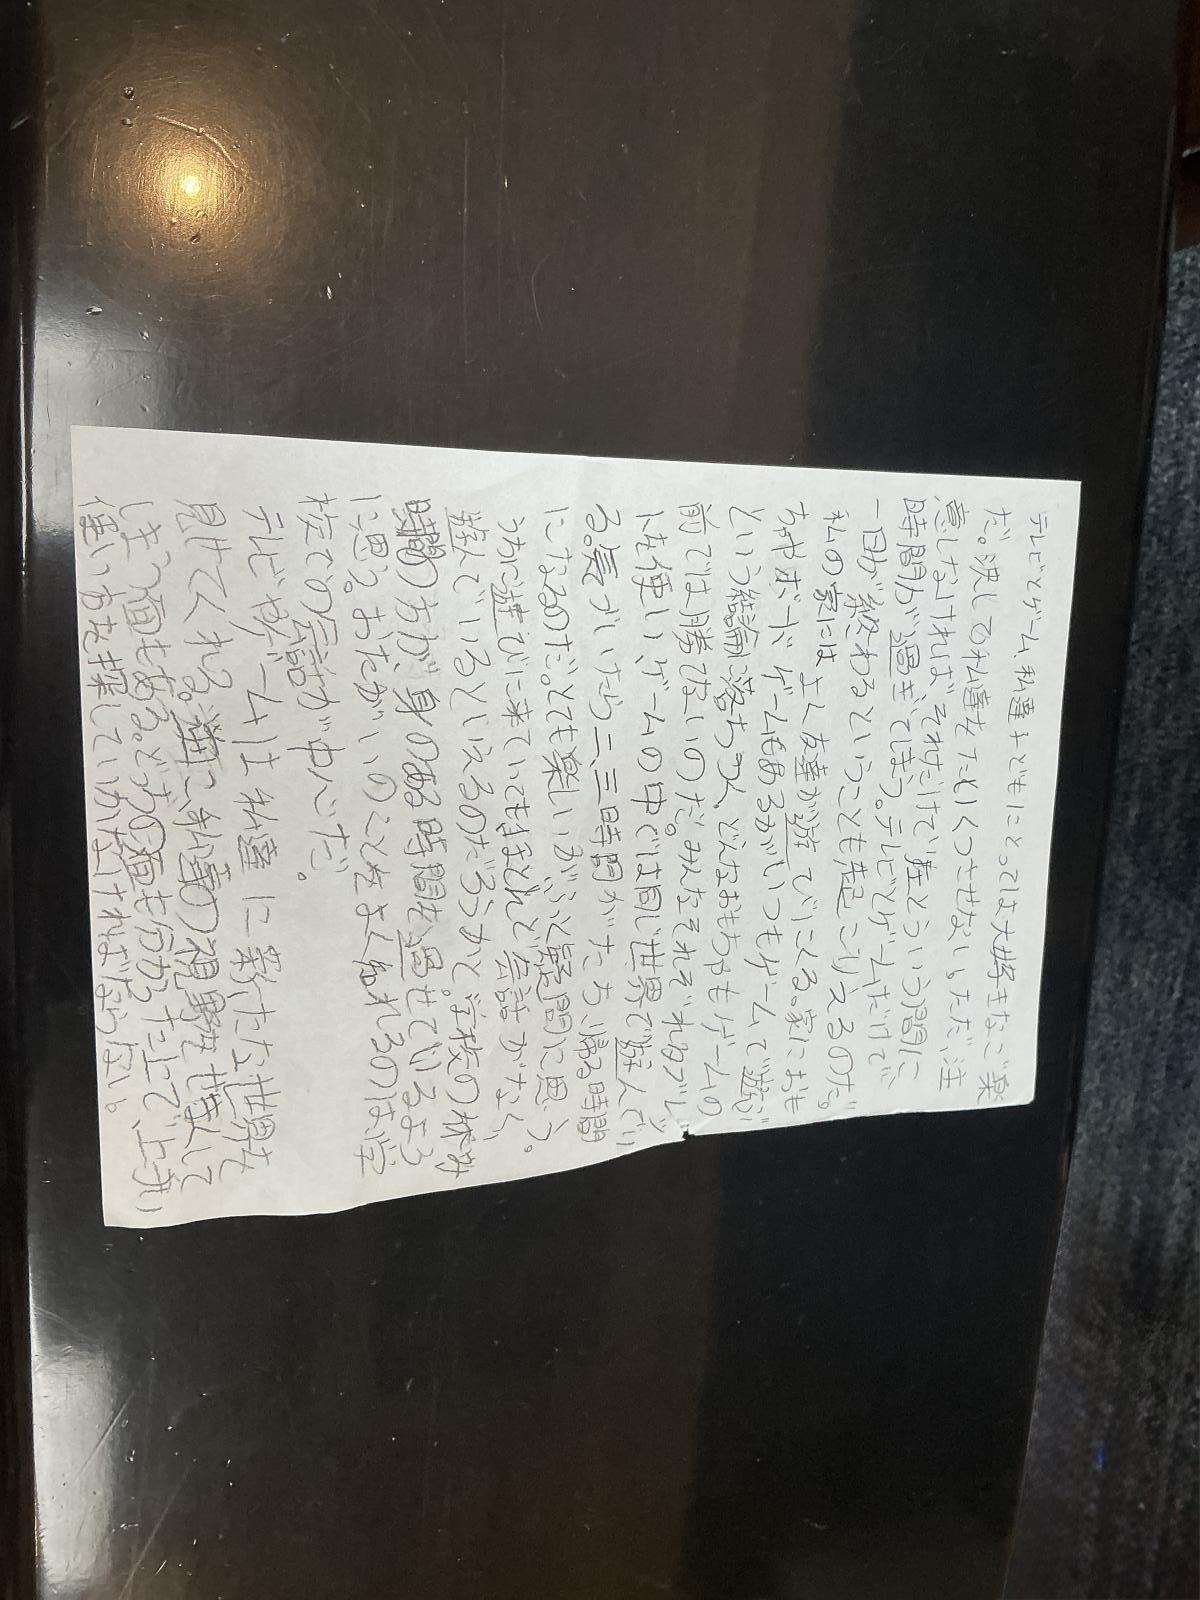 テレビとゲーム、私達子どもにとっては大好きなご楽
だ。決して私達をたいくつさせない。ただ注
意しなければ、それだけであっという間に
時間が過ぎてしまう。テレビとゲームだけで、
一日が終わるということも起こりえるのだ。
私の家にはよく友達が遊でにくる。家におも
ちゃやボードゲームもあるがいつもゲームで遊ぶ
という結論に落ちつく。どんなおもちゃもゲームの
前では勝てないのだ。みんなそれぞれタブレッ
トを使い、ゲームの中では同じ世界で遊んでい
る。気づいたら二、三時間がたち、帰る時間
になるのだ。とても楽しいが、ふと疑問に思う。
うちに遊びに来ていてもほとんど会話がなく、
遊んでいるといえるのだろうかと。学校の休み
時間の方が、身のある時間を過せているよう
に思う。おたがいのことをよく知れるのは学
校での会話が中心だ。
テレビやゲームは私達に新たな世界を
見せてくれる。逆に、私達の視野をせまくして
しまう面もある。どちらの面も分かった上で、上手い
使い方を探していかなければならない。